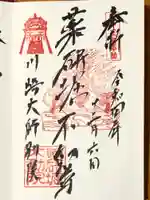 奉拝
令和四年
十二月六日
薬研堀不動尊
川崎大師別院